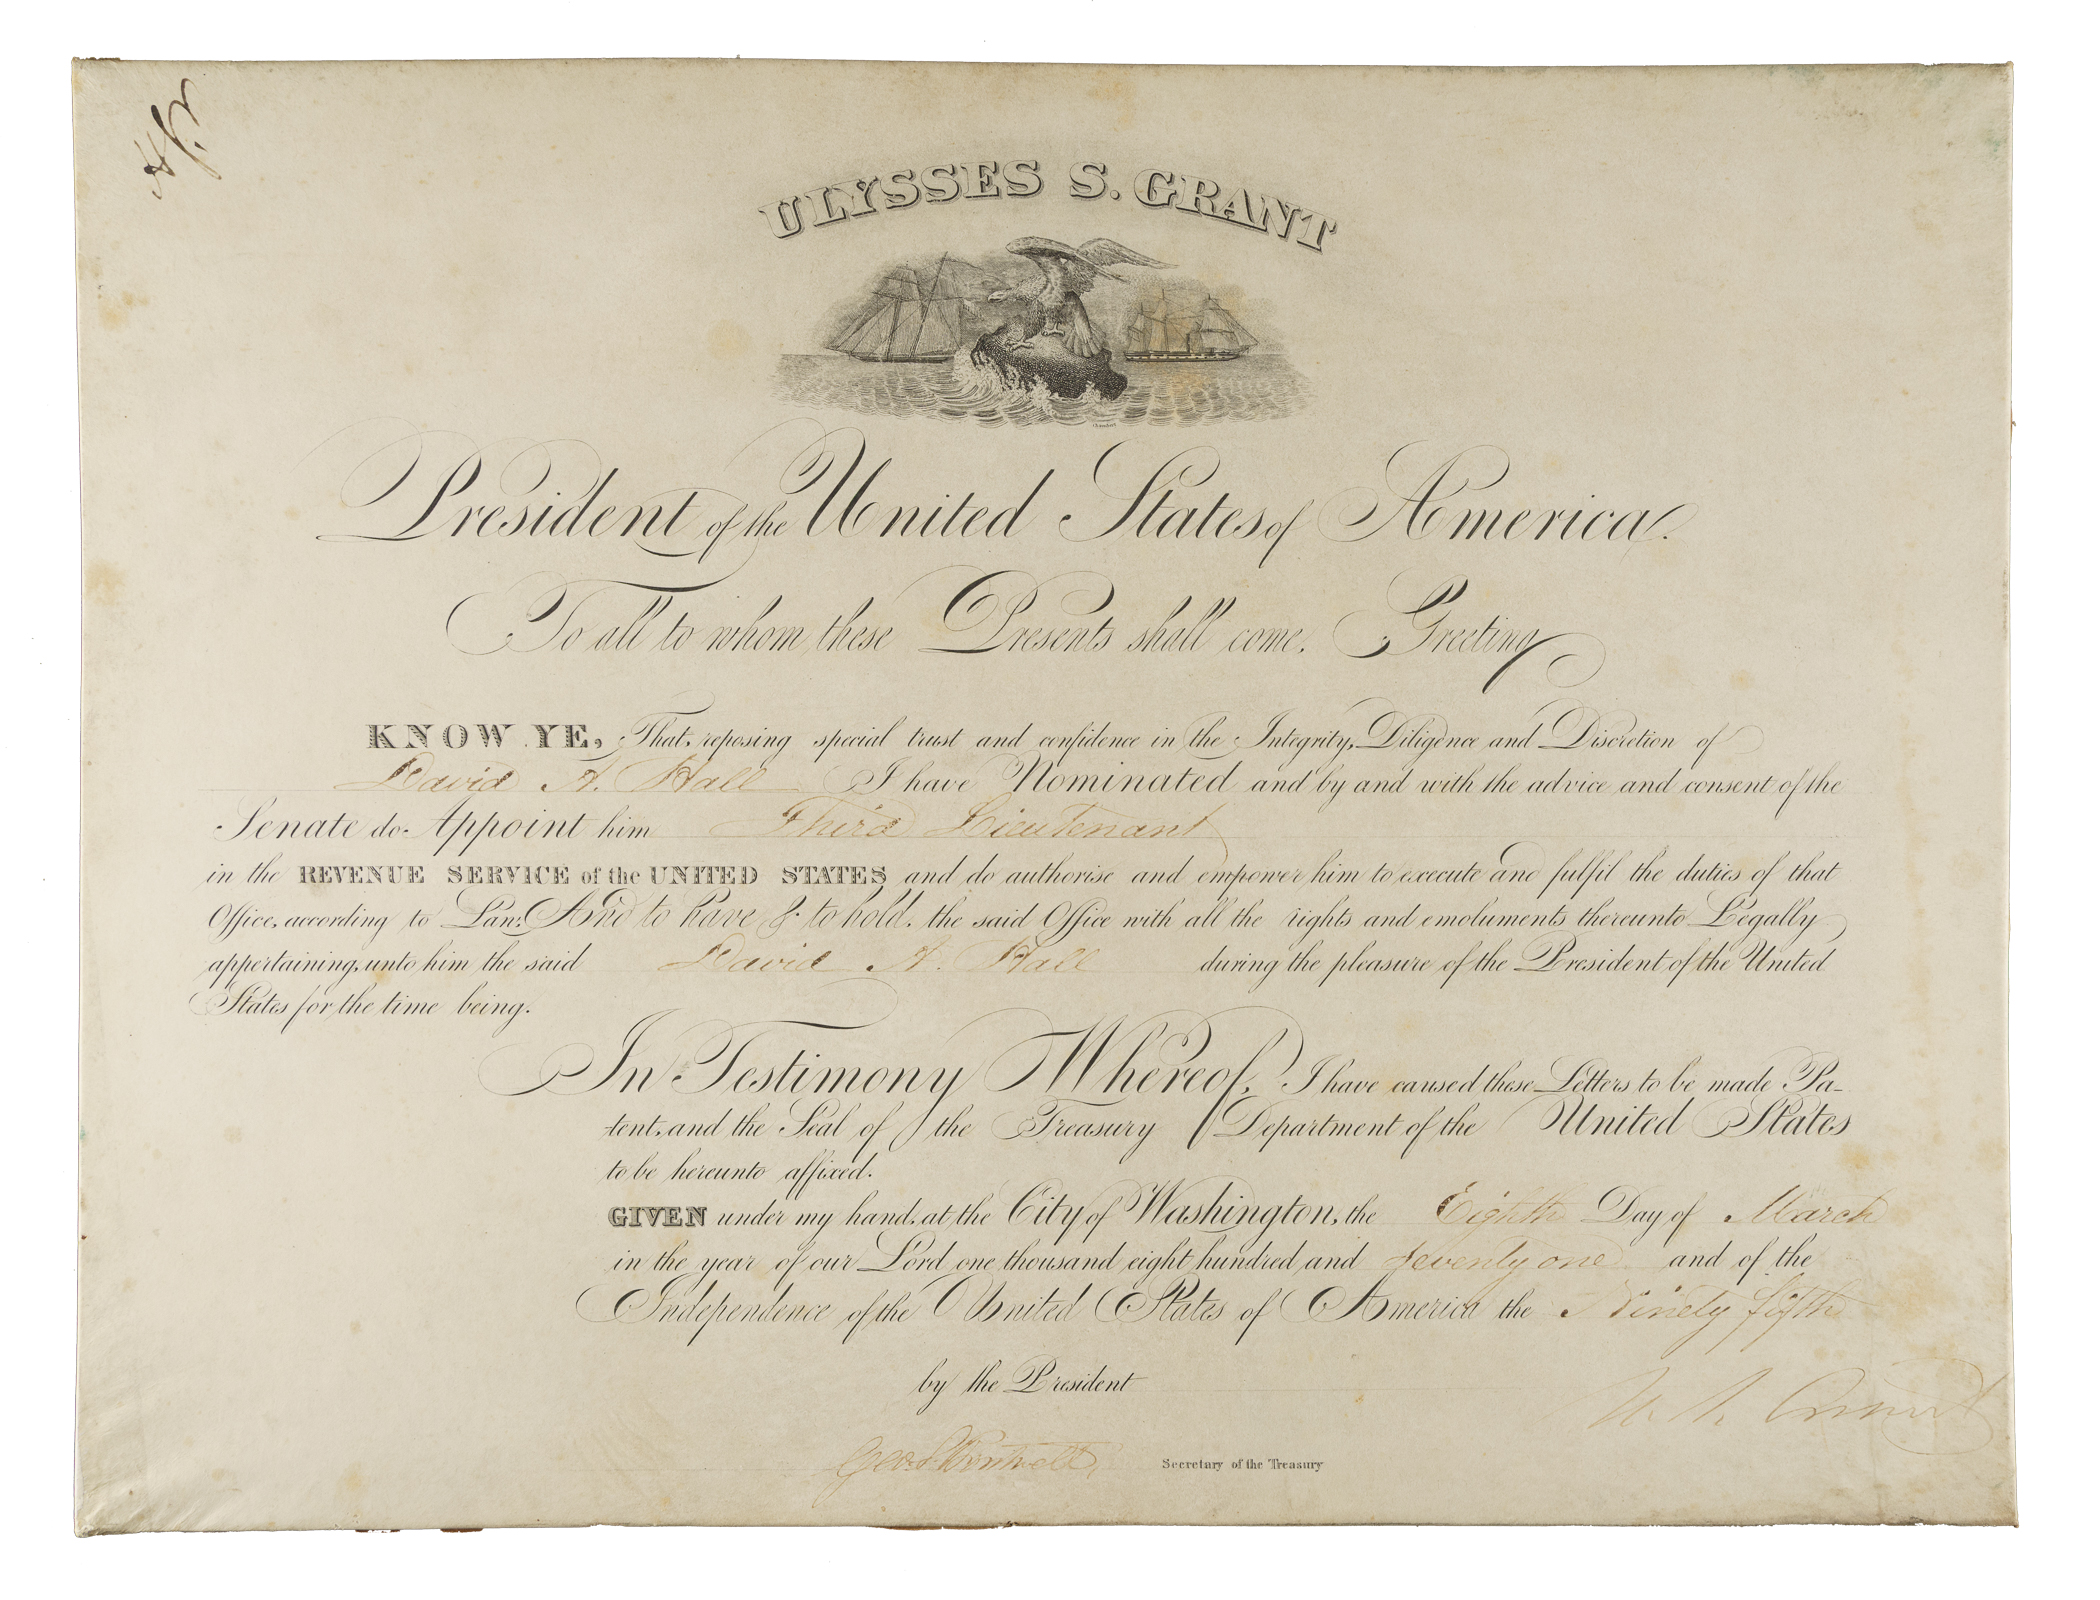 ULYSSES S. GRANT
President of the United States of America.
To all to whom these Presents shall come, Greeting
KNOW YE, That, reposing special trust and confidence in the Integrity, Diligence and Discretion of
David A. Hall I have Nominated and by and with the advice and consent of the
Senate do Appoint him Third Lieutenant
in the REVENUE SERVICE of the UNITED STATES and do authorise and empower him to execute and fulfil the duties of that
Office, according to Law; And to have & to hold, the said Office with all the rights and emoluments thereunto Legally
appertaining, unto him the said David A. Hall during the pleasure of the President of the United
States for the time being.
In Testimony Whereof, I have caused these Letters to be made Pa-
tent, and the Seal of the Treasury Department of the United States
to be hereunto affixed.
GIVEN under my hand, at the City of Washington, the Eighth Day of March
in the year of our Lord one thousand eight hundred and seventy one and of the
Independence of the United States of America the Ninety fifth
by the President U. S. Grant
Geo. S. Boutwell, Secretary of the Treasury